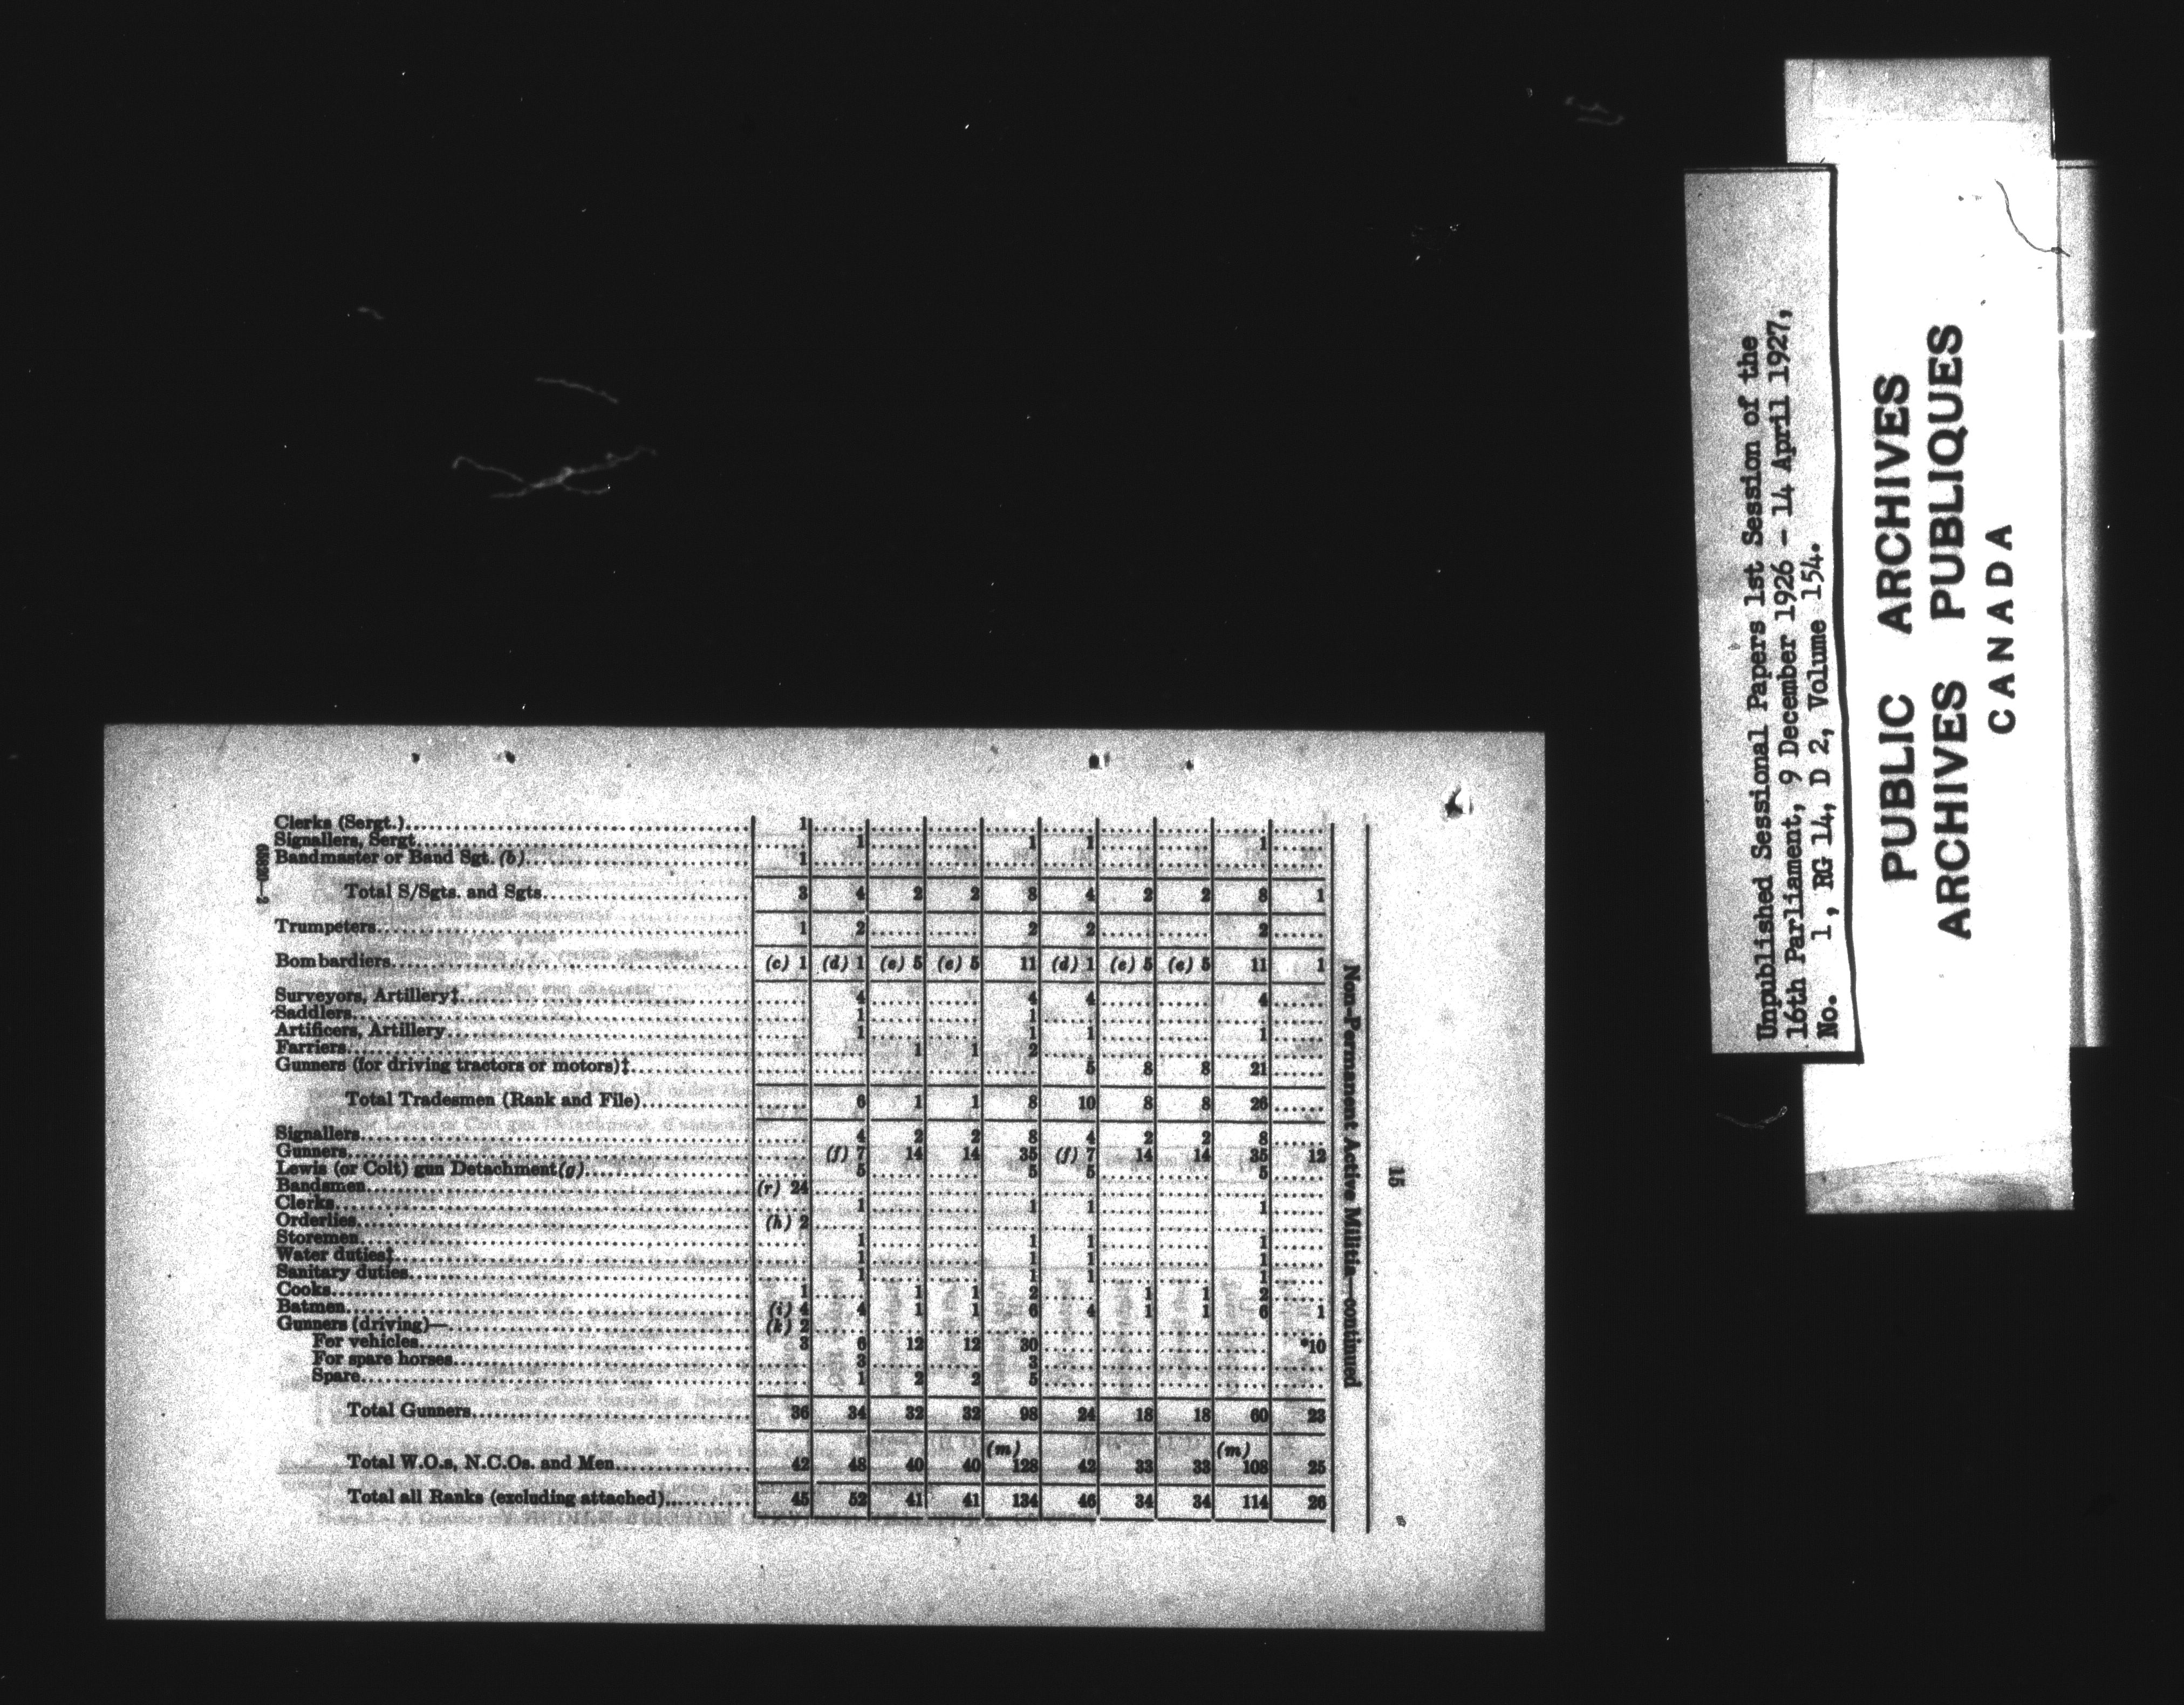 15
Non-Permanent Active Militia—continued
Clerks (Sergt.) 1
Signallers, Sergt. 1 1 1 1
Bandmaster or Band Sgt. (b) 1
Total S/Sgts. and Sgts. 3 4 2 2 8 4 2 2 8 1
Trumpeters 1 2 2 2 2
Bombardiers (c) 1 (d) 1 (e) 5 (e) 5 11 (d) 1 (e) 5 (e) 5 11 1
Surveyors, Artillery‡ 4 4 4 4
Saddlers 1 1
Artificers, Artillery 1 1 1 1
Farriers 1 1 2
Gunners (for driving tractors or motors)‡ 5 8 8 21
Total Tradesmen (Rank and File) 6 1 1 8 10 8 8 26
Signallers 4 2 2 8 4 2 2 8
Gunners (f) 7 14 14 35 (f) 7 14 14 35 12
Lewis (or Colt) gun Detachment (g) 5 5 5 5
Bandsmen (r) 24
Clerks 1 1 1 1
Orderlies (h) 2
Storemen 1 1 1 1
Water duties‡ 1 1 1 1
Sanitary duties 1 1 1 1
Cooks 1 1 1 2 1 1 2
Batmen (i) 4 4 1 1 6 4 1 1 6 1
Gunners (driving)— (k) 2
For vehicles 3 6 12 12 30 *10
For spare horses 3 3
Spare 1 2 2 5
Total Gunners 36 34 32 32 98 24 18 18 60 23
Total W.O.s, N.C.Os. and Men 42 48 40 40 (m) 128 42 33 33 (m) 108 25
Total all Ranks (excluding attached) 45 52 41 41 134 46 34 34 114 26
Unpublished Sessional Papers 1st Session of the
16th Parliament, 9 December 1926 - 14 April 1927,
No. 1, RG 14, D 2, Volume 154.
PUBLIC ARCHIVES
ARCHIVES PUBLIQUES
CANADA